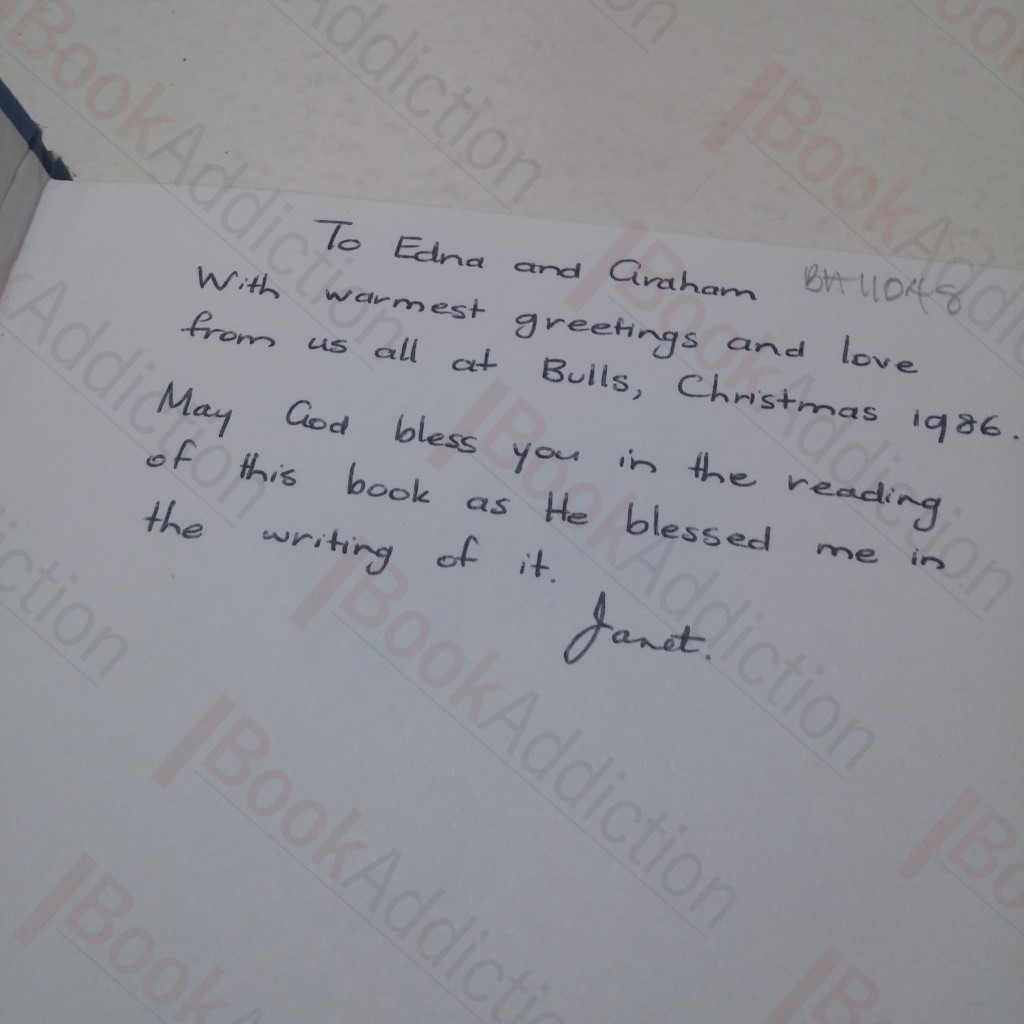 To Edna and Graham BH 11048
With warmest greetings and love
from us all at Bulls, Christmas 1986.
May God bless you in the reading
of this book as He blessed me in
the writing of it.
Janet.
BookAddiction